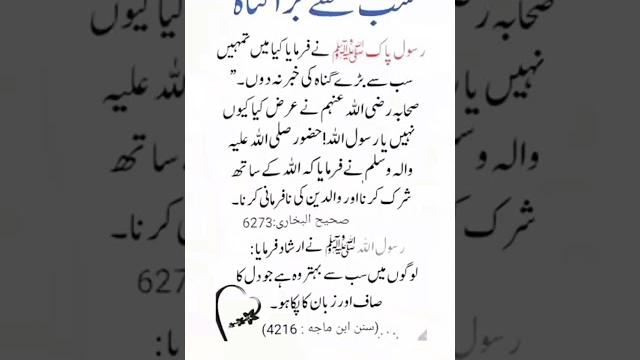 سب سے بڑا گناہ
رسول پاک ﷺ نے فرمایا کیا میں تمہیں
سب سے بڑے گناہ کی خبر نہ دوں۔”
صحابہ رضی اللہ عنہم نے عرض کیا کیوں
نہیں یا رسول اللہ! حضور صلی اللہ علیہ
والہ وسلم نے فرمایا کہ اللہ کے ساتھ
شرک کرنا اور والدین کی نافرمانی کرنا۔
صحیح البخاری:6273
رسول اللہ ﷺ نے ارشاد فرمایا:
لوگوں میں سب سے بہتر وہ ہے جو دل کا
صاف اور زبان کا پکا ہو۔
(سنن ابن ماجه : 4216)...